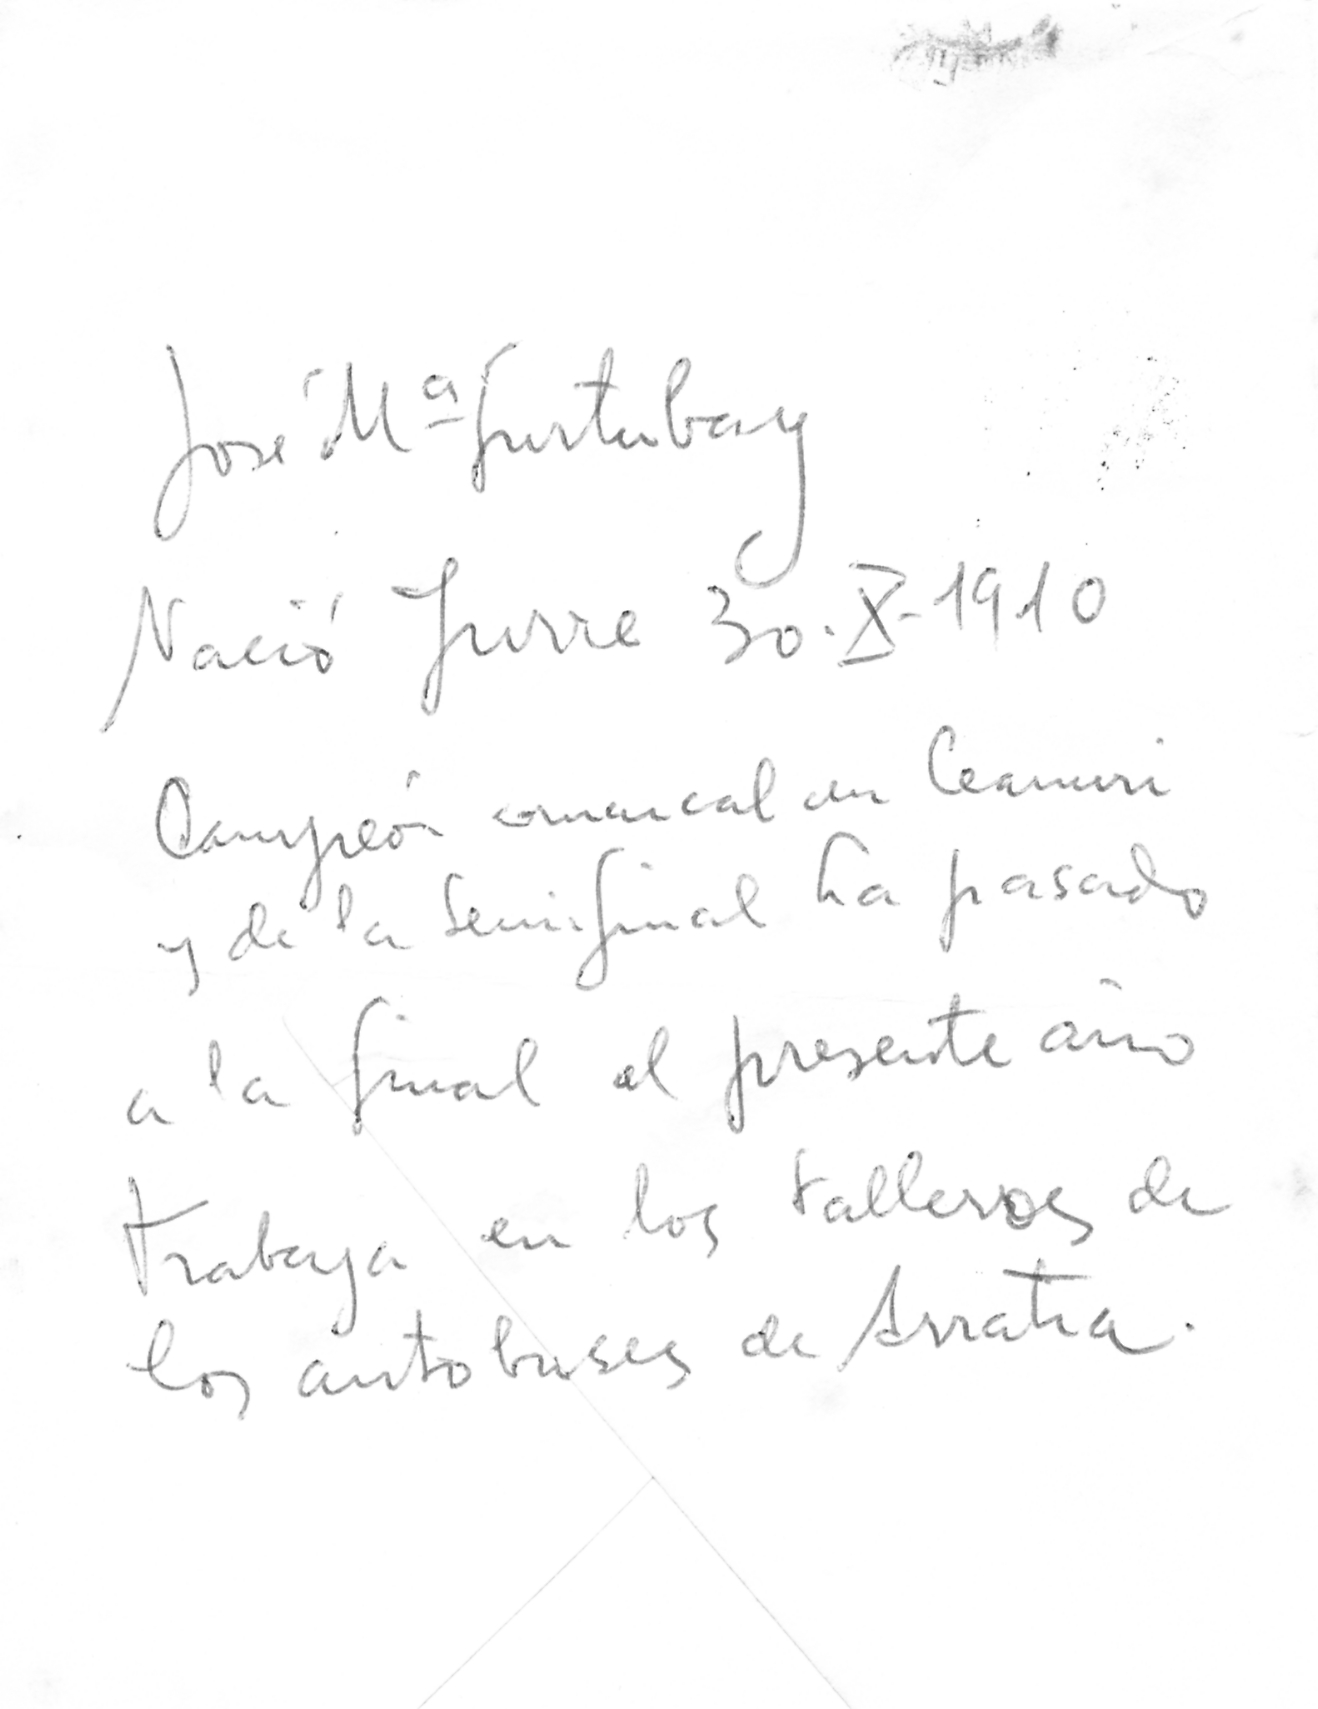 José Mª Gurtubay
Nació Yurre 30-X-1910
Campeón comarcal en Ceanuri
y de la semifinal ha pasado
a la final el presente año
trabaja en los talleres de
los autobuses de Arratia.